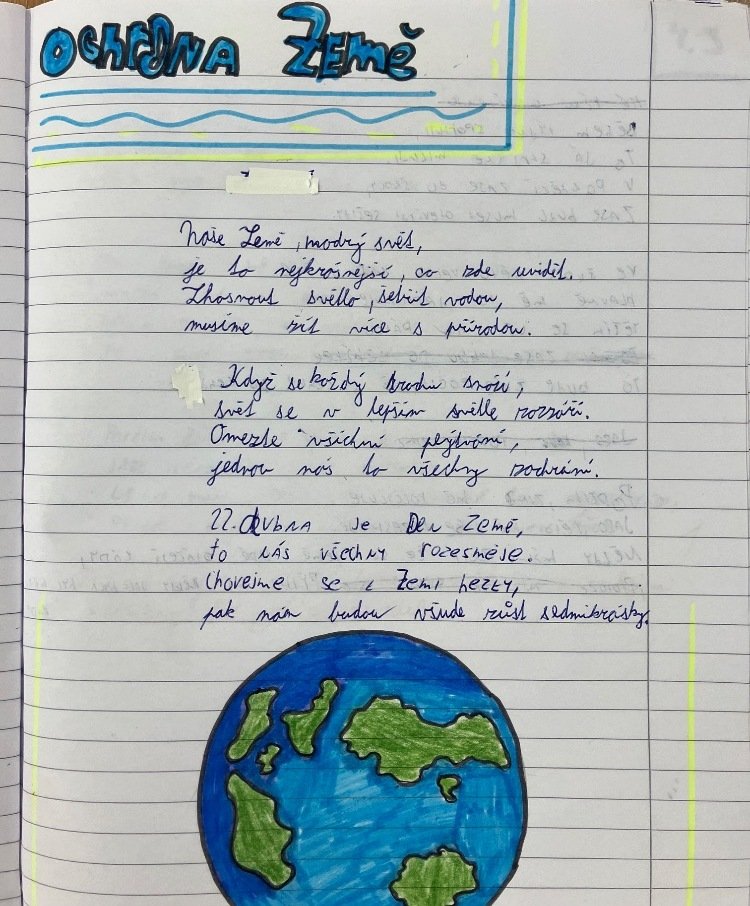 OCHRANA ZEMĚ
Naše Země, modrý svět,
je to nejkrásnější, co zde uvidět.
Zhasnout světlo, šetřit vodou,
musíme žít více s přírodou.
Když se každý trochu snaží,
svět se v lepším světle rozzáří.
Omezte všichni plýtvání,
jednou nás to všechny zachrání.
22. dubna je Den Země,
to nás všechny rozesměse.
Chovejme se k Zemi hezky,
pak nám budou všude růst sedmikrásky.